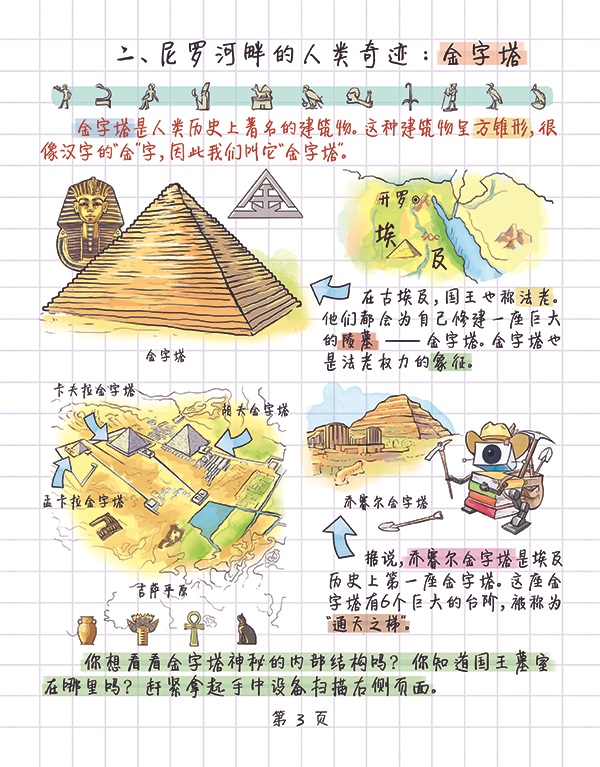 二、尼罗河畔的人类奇迹：金字塔
金字塔是人类历史上著名的建筑物。这种建筑物呈方锥形，很
像汉字的“金”字，因此我们叫它“金字塔”。
金字塔
开罗
埃
及
在古埃及，国王也称法老。
他们都会为自己修建一座巨大
的陵墓——金字塔。金字塔也
是法老权力的象征。
卡夫拉金字塔
胡夫金字塔
孟卡拉金字塔
吉萨平原
乔赛尔金字塔
据说，乔赛尔金字塔是埃及
历史上第一座金字塔。这座金
字塔有6个巨大的台阶，被称为
“通天之梯”。
你想看看金字塔神秘的内部结构吗？你知道国王墓室
在哪里吗？赶紧拿起手中设备扫描右侧页面。
第 3 页